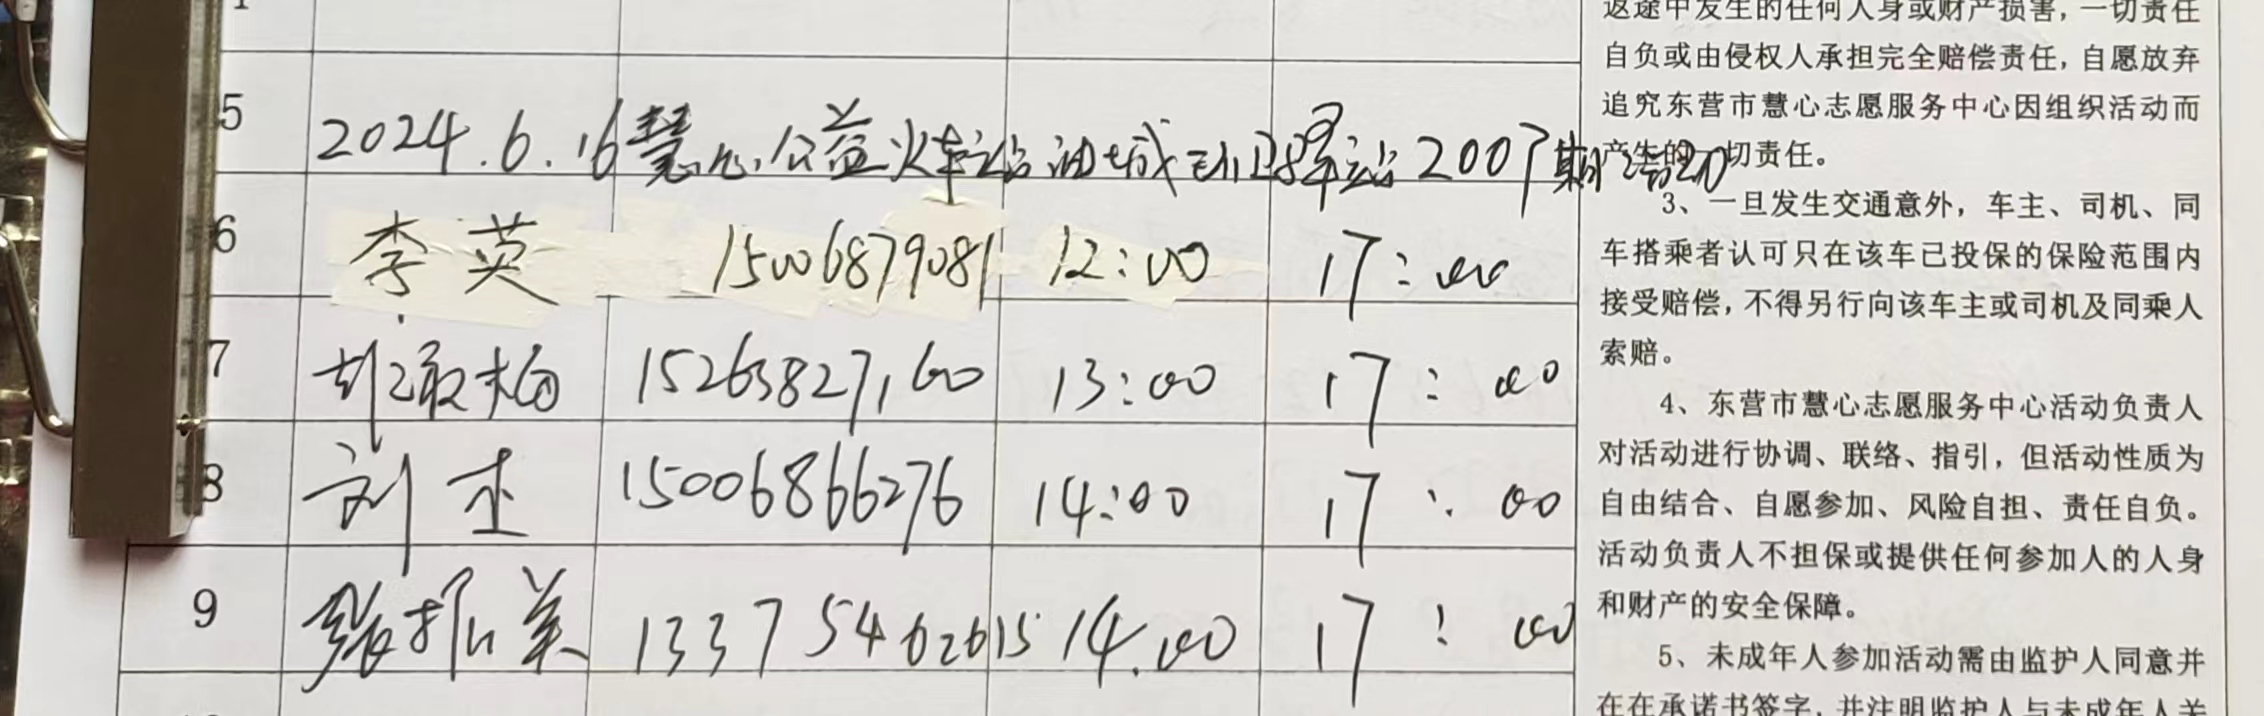 返途中发生的任何人身或财产损害，一切责任
自负或由侵权人承担完全赔偿责任，自愿放弃
追究东营市慧心志愿服务中心因组织活动而
产生的一切责任。
3、一旦发生交通意外，车主、司机、同
车搭乘者认可只在该车已投保的保险范围内
接受赔偿，不得另行向该车主或司机及同乘人
索赔。
4、东营市慧心志愿服务中心活动负责人
对活动进行协调、联络、指引，但活动性质为
自由结合、自愿参加、风险自担、责任自负。
活动负责人不担保或提供任何参加人的人身
和财产的安全保障。
5、未成年人参加活动需由监护人同意并
在在承诺书签字，并注明监护人与未成年人关
5 2024.6.16慧心公益火车站油城 站2007期活动
6 李英 15006879081 12:00 17:00
7 敏梅 15263827160 13:00 17:00
8 刘杰 15006866276 14:00 17:00
9 张振美 13375462615 14.00 17:00